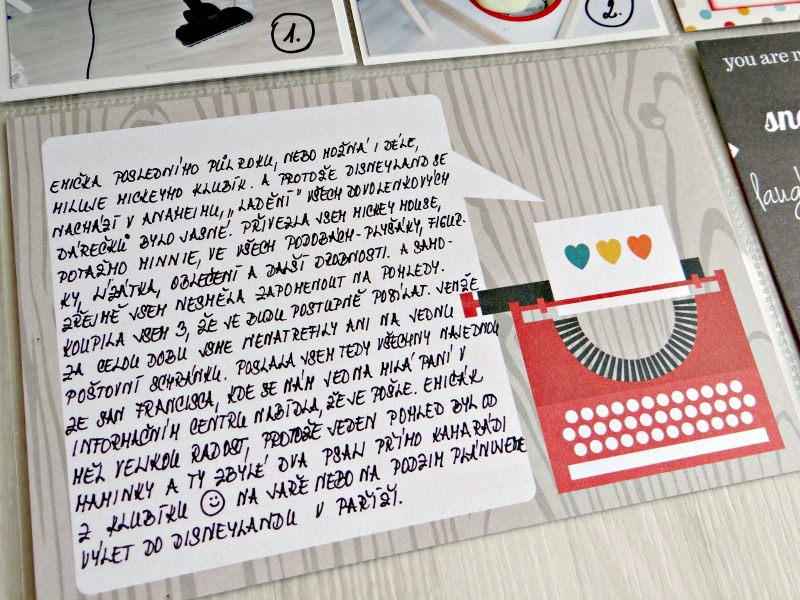 1.
2.
you are m
sn
laug
EMIČKA POSLEDNÍHO PŮL ROKU, NEBO MOŽNÁ I DÉLE,
MILUJE MICKEYHO KLUBÍK. A PROTOŽE DISNEYLAND SE
NACHÁZÍ V ANAHEIMU, „LADĚNÍ" VŠECH DOVOLENKOVÝCH
DÁREČKŮ BYLO JASNÉ. PŘIVEZLA JSEM MICKEY MOUSE,
POTAŽMO MINNIE, VE VŠECH PODOBÁCH - PLYŠÁKY, FIGUR-
KY, LÍZÁTKA, OBLEČENÍ A DALŠÍ DROBNOSTI. A SAMO-
ZŘEJMĚ JSEM NESMĚLA ZAPOMENOUT NA POHLEDY.
KOUPILA JSEM 3, ŽE JE BUDU POSTUPNĚ POSÍLAT. JENŽE
ZA CELOU DOBU JSME NENATREFILY ANI NA JEDNU
POŠTOVNÍ SCHRÁNKU. POSLALA JSEM TEDY VŠECHNY NAJEDNOU
ZE SAN FRANCISCA, KDE SE NÁM JEDNA MILÁ PANÍ V
INFORMAČNÍM CENTRU NABÍDLA, ŽE JE POŠLE. EMIČÁK
MĚL VELIKOU RADOST, PROTOŽE JEDEN POHLED BYL OD
MAMINKY A TY ZBYLÉ DVA PSALI PŘÍMO KAMARÁDI
Z KLUBÍKU ☺ NA JAŘE NEBO NA PODZIM PLÁNUJEME
VÝLET DO DISNEYLANDU V PAŘÍŽI.